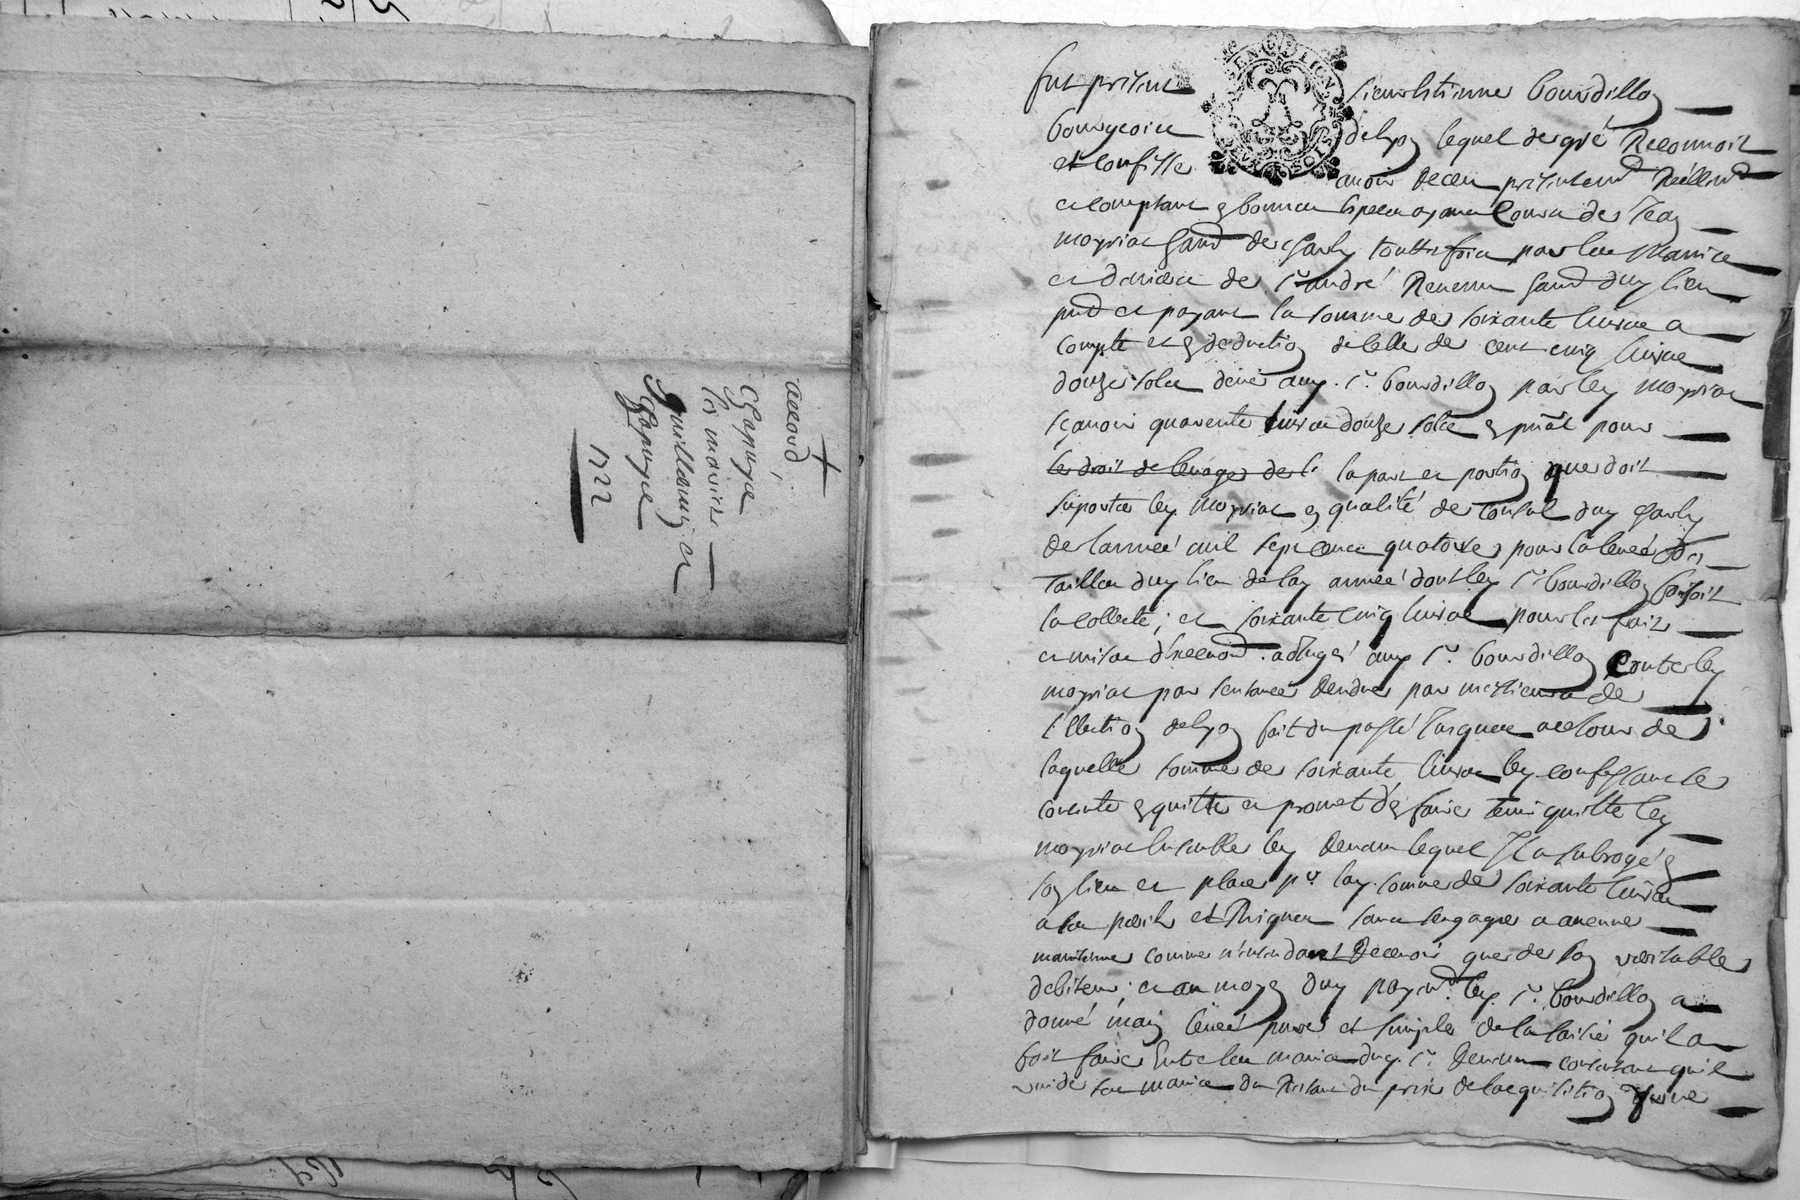 accord
Chapuye
les mariés
Guillaumy et
Chapuye
1722
GEN DE LION
fut présent sieur Estienne Bourdillon
bourgeois de Lyon lequel de gré Reconnoit
et confesse avoir Receu présentemt Réellemt
et comptant en bonnes espèces ayant cours de Jean
moyriat gand de Charly touttefois par les mains
et deniers de sr andré Revenu gand dud lieu
pnt et payant la somme de soixante livres a
compte et en déduction de celle de cent cinq livres
douze sols deue aud. sr. bourdillon par led moyriat
sçavoir quarente livres douze sols en prāl pour
le droit de levage de l' la part et portion que doit
suporter led moyriat en qualité de consul dud Charly
de l'année mil sept cents quatorze pour la levée des
Tailles dud lieu de lad année dont led sr bourdillon faisoit
la collecte; et soixante cinq livres pour les frais
et mises d'exécuon adjugé aud sr. bourdillon contre led
moyriat par sentence Rendue par messieurs de
l'Election de Lyon fait du passé jusques a ce jour de
laquelle somme de soixante livres led confessant se
contente en quitte et promet d'en faire tenir quitte led
moyriat ensemble led Revenu lequel Il a subrogé en
son lieu et place pr lad. somme de soixante livres
a ses périls et Risques sans s'engager a aucune
maintenue comme n'entendant Recevoir que de son véritable
débiteur; et au moyen dud payemt led. sr. bourdillon a
donné main levée pure et simple de la saisie qu'il a
fait faire Entre les mains dud. sr. Revenu consentant qu'il
vuide ses mains du Restant du prix de l'acquisition d'une